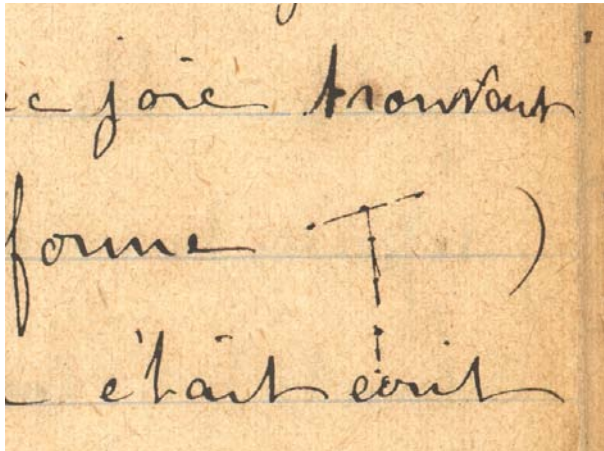 joie trouvant
forme T )
était écrit